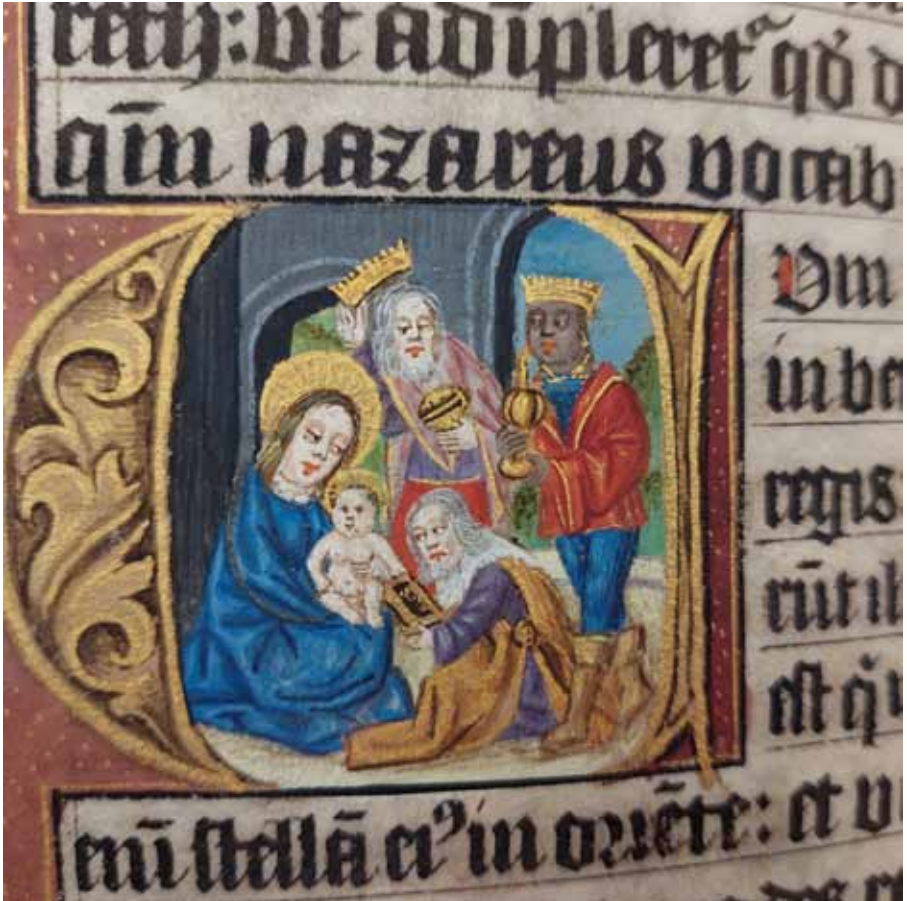 reth: ut adīpleretᵃ qđ d
qm̄ nazareus vocab
Um
in be
regis
rūt ih
est q̇
enī stellā eiꝰ in oriēte: et v